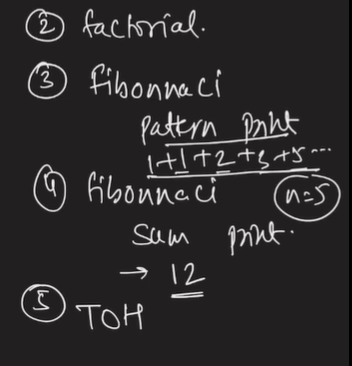 ② factorial.
③ fibonnaci
pattern print
1+1+2+3+5...
④ fibonnaci n=5
sum print.
→ 12
⑤ TOH